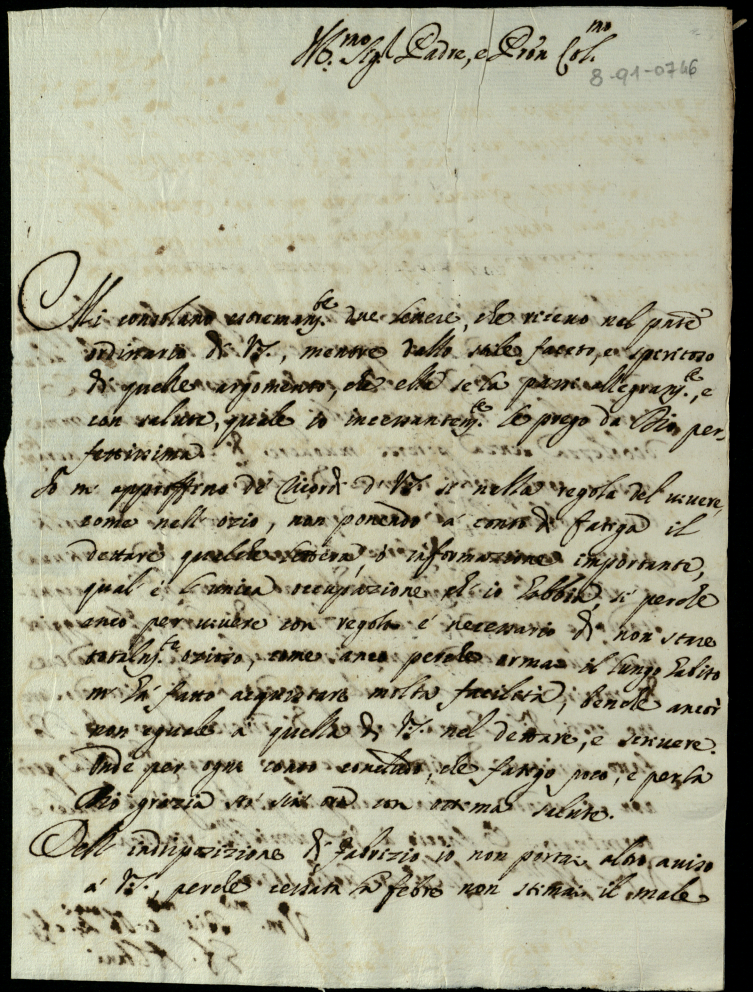 Ill.mo Sig.r Padre, e Pron Col.mo
8-91-0746
Mi consolano estremam.te due lettere, che riceuo nel pnte
ordinario di VS., mentre dallo stile faceto, e spiritoso
di quelle argomento, che ella se la passi allegram.te, e
con salute, quale io incessantem.te le prego da Dio per-
fettissima
Io m'approffitto de' ricordi di VS. si nella regola del uiuere,
come nell'ozio, non ponendo a' conto di fatiga il
dettare qualche lettera, o informazione importante,
qual è l'unica occupazione ch'io habbia, si perche
anco per uiuere con regola è necessario di non stare
totalm.te ozioso, come anco perche ormai il lungo habito
m'ha' fatto acquistare molta facilità, benche ancor
non eguale a' quella di VS. nel dettare, e scriuere.
Onde per ogni conto concludo, che fatigo poco, e per la
Dio grazia si sta con ottima salute.
Dell'indisposizione di Fabrizio io non portai altro auiso
a' VS., perche cessata la febre non stimai il male